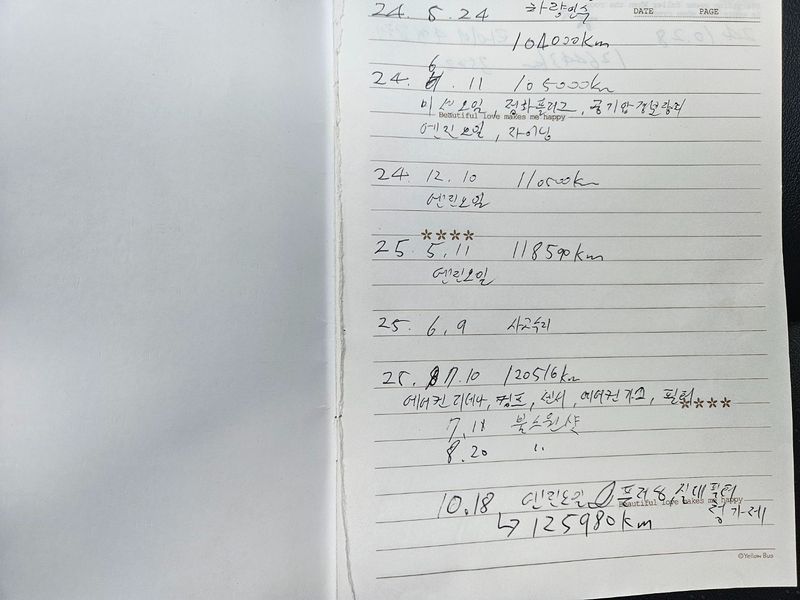 DATE PAGE
24. 5. 24 차량인수
104000km
24. 6. 11 105000km
미션오일, 점화플러그, 공기압경보장치
Beautiful love makes me happy
엔진오일, 라이닝
24. 12. 10 110500km
엔진오일
25. 5. 11 118590km
엔진오일
25. 6. 9 사고수리
25. 7. 10 120516km
에어컨 콤프, 센서, 에어컨가스, 필터
7. 18 불스원샷
8. 20 〃
10. 18 엔진오일, 실내필터
Beautiful love makes me happy
↳ 125980km
©Yellow Bus